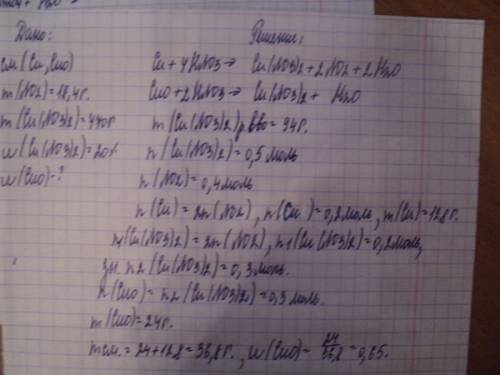 Дано:
Решение:
см (Cu, CuO)
m(NO2) = 18,4г.
m(Cu(NO3)2) = 470г
w(Cu(NO3)2) = 20%
w(CuO) - ?
Cu + 4HNO3 → Cu(NO3)2 + 2NO2 + 2H2O
CuO + 2HNO3 → Cu(NO3)2 + H2O
m(Cu(NO3)2) р.в-во = 94г.
n(Cu(NO3)2) = 0,5 моль
n(NO2) = 0,4 моль
n(Cu) = 2n(NO2), n(Cu) = 0,2 моль, m(Cu) = 12,8г.
n1(Cu(NO3)2) = 2n(NO2), n1(Cu(NO3)2) = 0,2 моль,
зн. n2(Cu(NO3)2) = 0,3 моль.
n(CuO) = n2(Cu(NO3)2) = 0,3 моль.
m(CuO) = 24г.
mсм. = 24 + 12,8 = 36,8г., w(CuO) = 24/36,8 = 0,65.